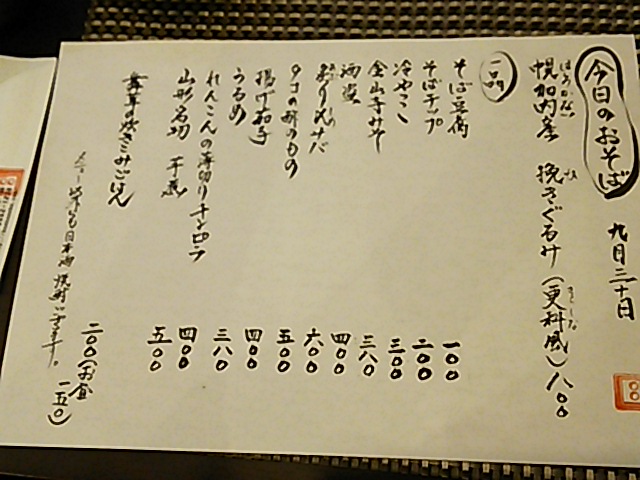 今日のおそば 九月三十日
幌加内産 挽きぐるみ(更科風)八〇〇
一品
そば豆腐 一〇〇
そばチップ 二〇〇
冷やっこ 三〇〇
金山寺みそ 三八〇
酒盗 四〇〇
炙り〆サバ 六〇〇
タコの酢のもの 五〇〇
揚げ茄子 四〇〇
うるめ 三八〇
れんこんの薄切りキンピラ 四〇〇
山形名物 芋煮 五〇〇
舞茸の炊きこみごはん 二〇〇(お昼 一五〇)
日本酒 焼酎ございます。